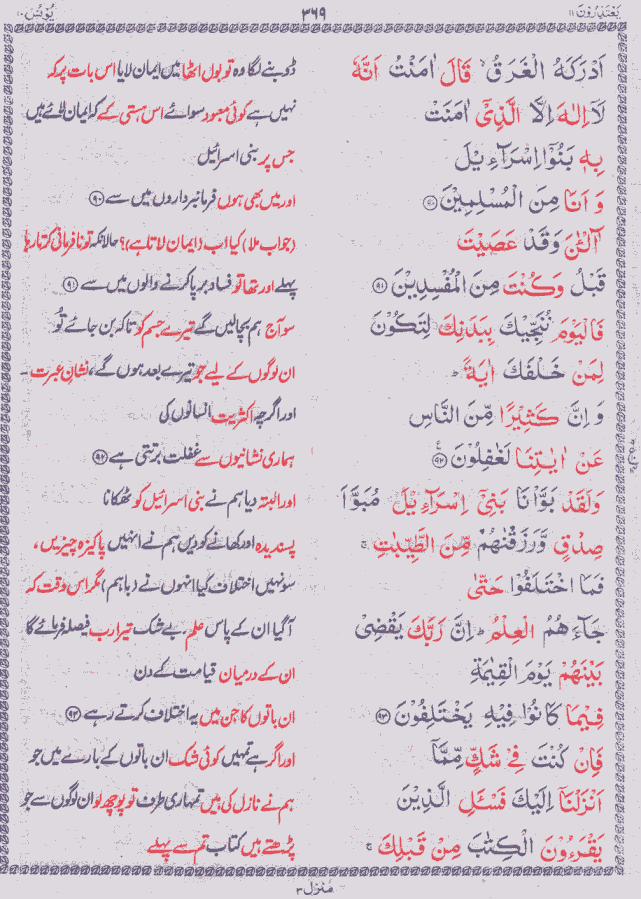 یَعْتَذِرُوْنَ ۱۱
۳۶۹
یُوْنُس ۱۰
اَدْرَكَهُ الْغَرَقُ ۙ قَالَ اٰمَنْتُ اَنَّهٗ
ڈوبنے لگا وہ تو بول اٹھا میں ایمان لایا اس بات پر کہ
لَاۤ اِلٰهَ اِلَّا الَّذِیْۤ اٰمَنَتْ
نہیں ہے کوئی معبود سوائے اس ہستی کے کہ ایمان لائے ہیں
بِهٖ بَنُوْۤا اِسْرَآءِیْلَ
جس پر بنی اسرائیل
وَ اَنَا مِنَ الْمُسْلِمِیْنَ ۹۰
اور میں بھی ہوں فرمانبرداروں میں سے ۹۰
آٰلْـٰٔنَ وَ قَدْ عَصَیْتَ
(جواب ملا) کیا اب (ایمان لاتا ہے)؟ حالانکہ تو نافرمانی کرتا رہا
قَبْلُ وَ كُنْتَ مِنَ الْمُفْسِدِیْنَ ۹۱
پہلے اور تھا تو فساد برپا کرنے والوں میں سے ۹۱
فَالْیَوْمَ نُنَجِّیْكَ بِبَدَنِكَ لِتَكُوْنَ
سو آج ہم بچالیں گے تیرے جسم کو تاکہ بن جائے تُو
لِمَنْ خَلْفَكَ اٰیَةً ؕ
ان لوگوں کے لیے جو تیرے بعد ہوں گے، نشانِ عبرت ۔
وَ اِنَّ كَثِیْرًا مِّنَ النَّاسِ
اور اگرچہ اکثریت انسانوں کی
عَنْ اٰیٰتِنَا لَغٰفِلُوْنَ ۹۲
ہماری نشانیوں سے غفلت برتتی ہے ۹۲
وَ لَقَدْ بَوَّاْنَا بَنِیْۤ اِسْرَآءِیْلَ مُبَوَّاَ
اور البتہ دیا ہم نے بنی اسرائیل کو ٹھکانا
صِدْقٍ وَّ رَزَقْنٰهُمْ مِّنَ الطَّیِّبٰتِ ۚ
پسندیدہ اور کھانے کو دیں ہم نے انہیں پاکیزہ چیزیں،
فَمَا اخْتَلَفُوْا حَتّٰی
سو نہیں اختلاف کیا انہوں نے (باہم) مگر اس وقت کہ
جَآءَهُمُ الْعِلْمُ ؕ اِنَّ رَبَّكَ یَقْضِیْ
آگیا ان کے پاس علم بے شک تیرا رب فیصلہ فرمائے گا
بَیْنَهُمْ یَوْمَ الْقِیٰمَةِ
ان کے درمیان قیامت کے دن
فِیْمَا كَانُوْا فِیْهِ یَخْتَلِفُوْنَ ۹۳
ان باتوں کا جن میں یہ اختلاف کرتے رہے ۹۳
فَاِنْ كُنْتَ فِیْ شَكٍّ مِّمَّاۤ
اور اگر ہے تمہیں کوئی شک ان باتوں کے بارے میں جو
اَنْزَلْنَاۤ اِلَیْكَ فَسْـَٔلِ الَّذِیْنَ
ہم نے نازل کی ہیں تمہاری طرف تو پوچھ لو ان لوگوں سے جو
یَقْرَءُوْنَ الْكِتٰبَ مِنْ قَبْلِكَ ۚ
پڑھتے ہیں کتاب تم سے پہلے
منزل ۳